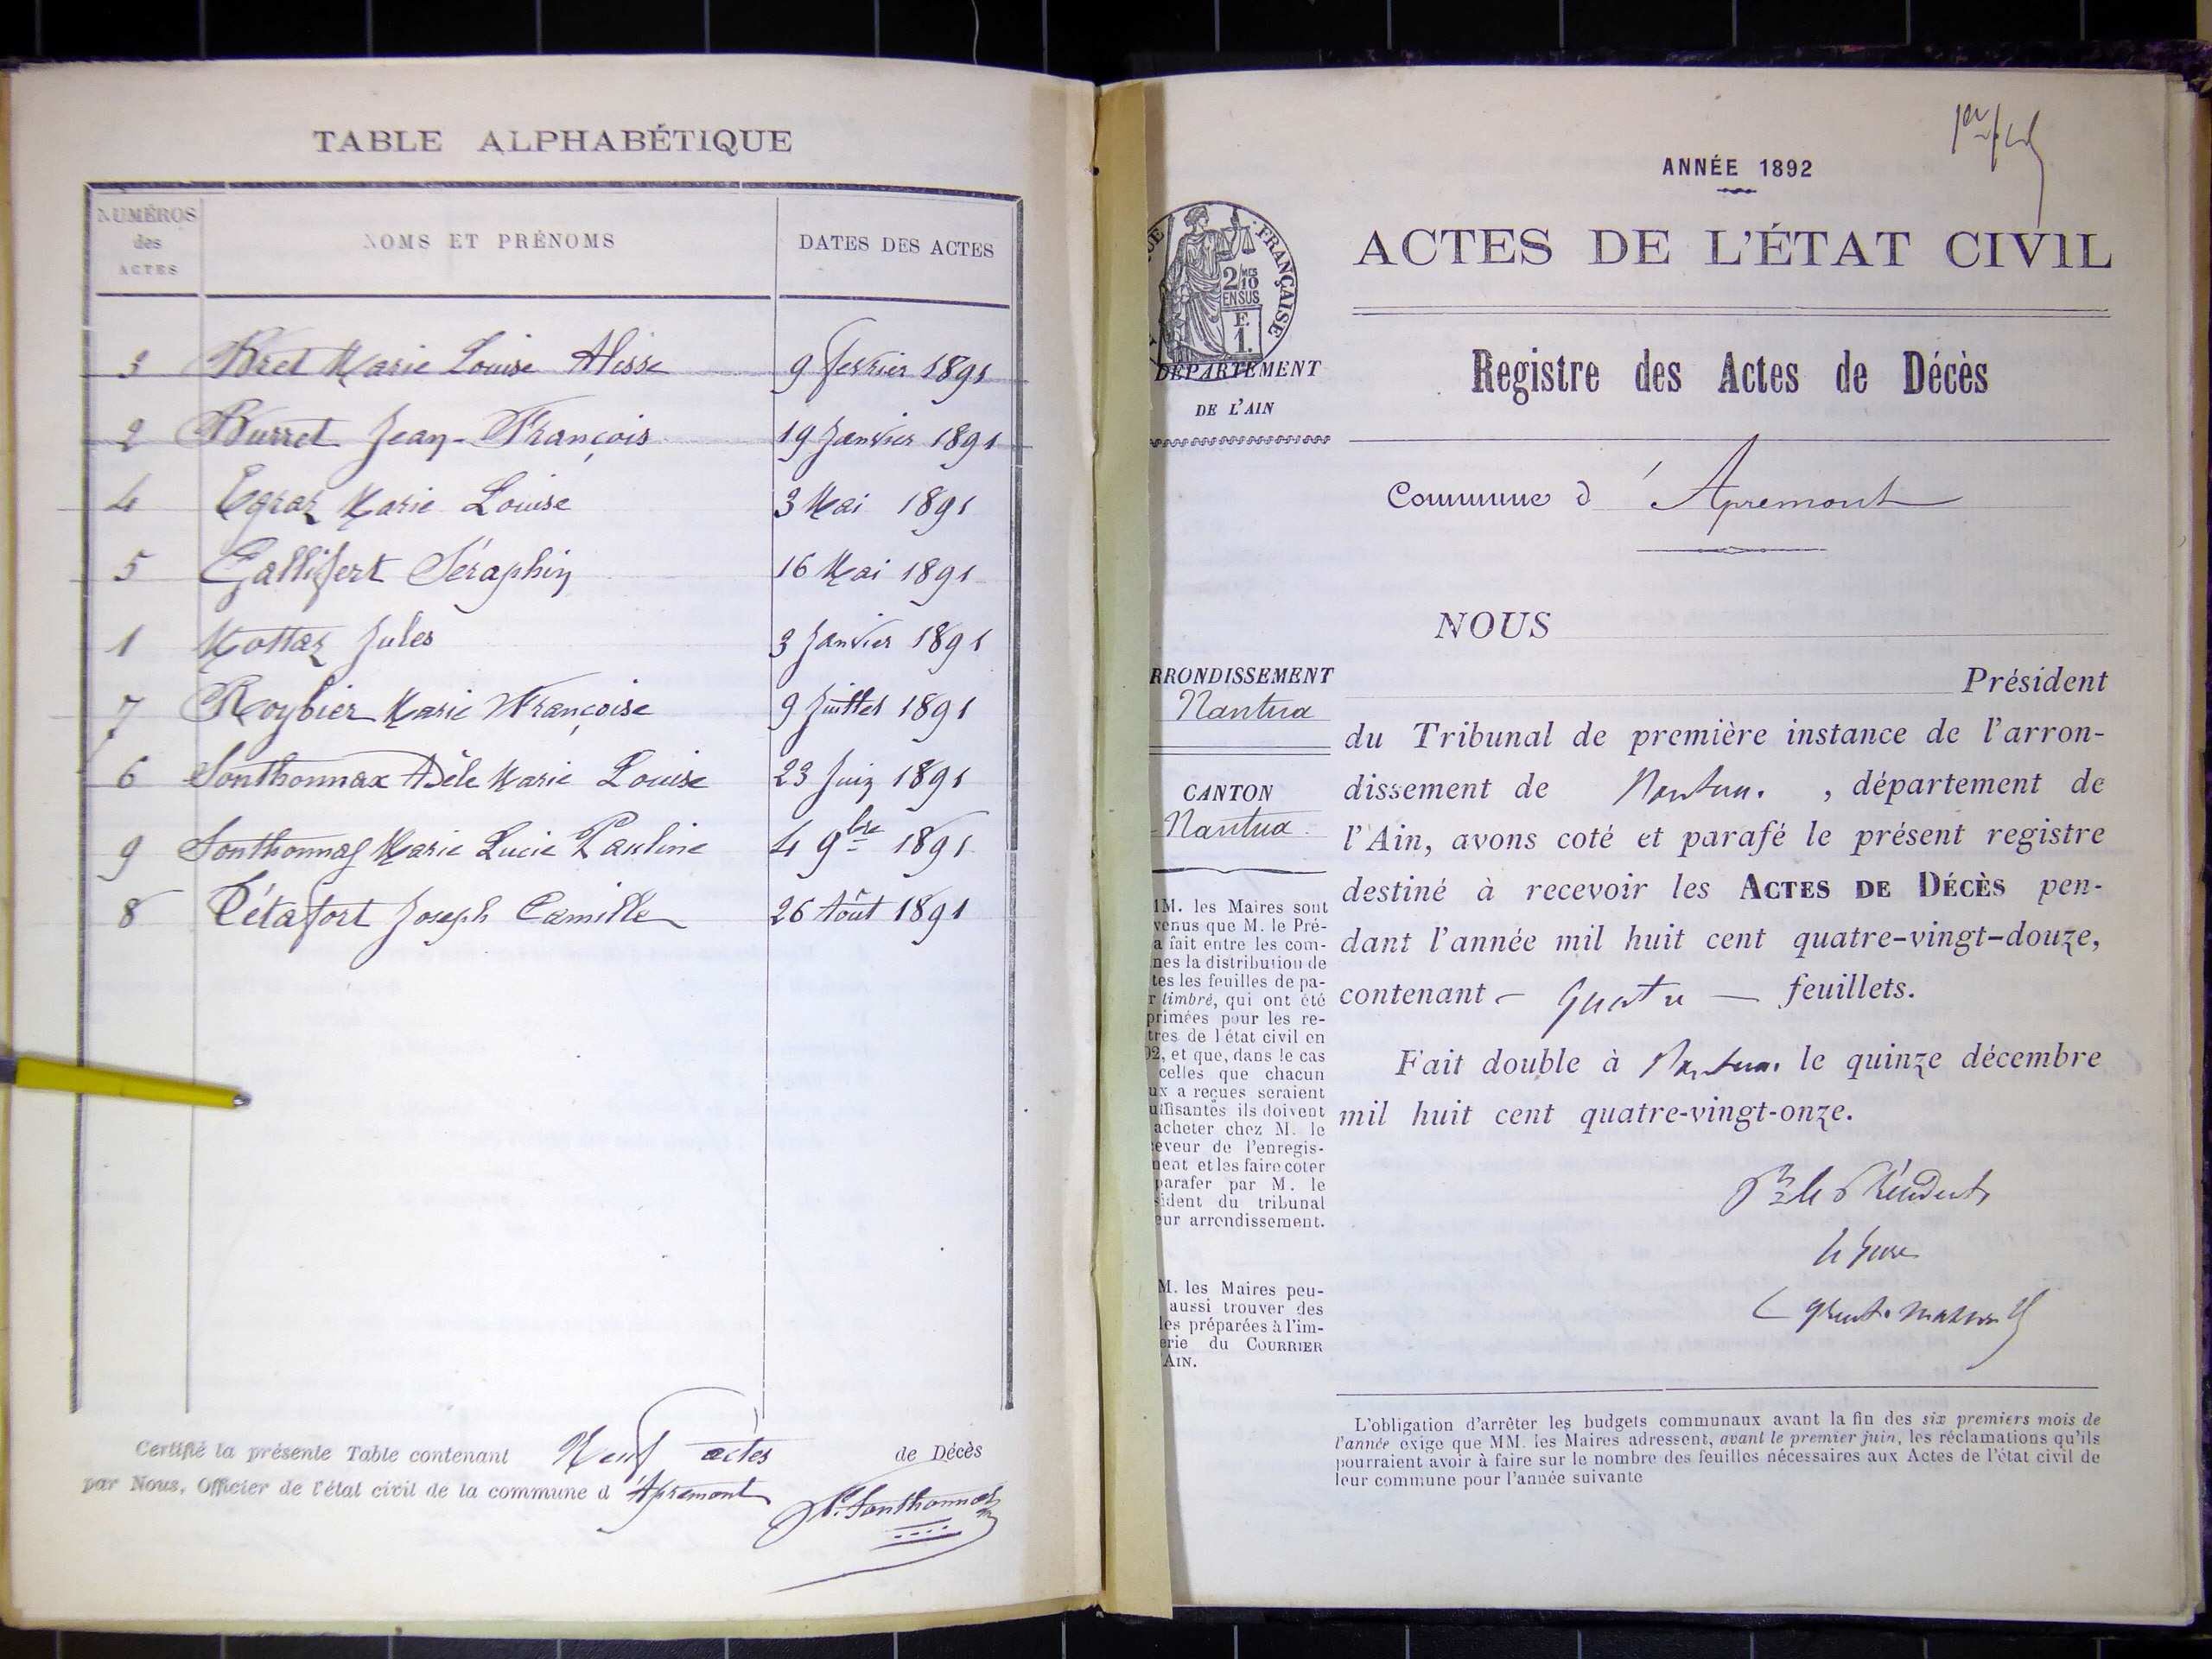 TABLE ALPHABÉTIQUE
NUMÉROS des ACTES NOMS ET PRÉNOMS DATES DES ACTES
3 Bret Marie Louise Alisse 9 février 1891
2 Burret Jean-François 19 Janvier 1891
4 Egraz Marie Louise 3 Mai 1891
5 Gallifert Séraphin 16 Mai 1891
1 Mottaz Jules 3 Janvier 1891
7 Roybier Marie Françoise 9 Juillet 1891
6 Sonthonnax Adèle Marie Louise 23 Juin 1891
9 Sonthonnax Marie Lucie Pauline 4 9bre 1891
8 Tétafort Joseph Camille 26 Août 1891
Certifié la présente Table contenant Neuf actes de Décès
par Nous, Officier de l'état civil de la commune d'Apremont
Sonthonnax
ANNÉE 1892
ACTES DE L'ÉTAT CIVIL
FRANÇAISE
2/10
MES
EN SUS
E.
1.
DÉPARTEMENT
DE L'AIN
Registre des Actes de Décès
Commune d'Apremont
NOUS
RRONDISSEMENT
Nantua
CANTON
Nantua
Président
du Tribunal de première instance de l'arron-
dissement de Nantua, département de
l'Ain, avons coté et parafé le présent registre
destiné à recevoir les ACTES DE DÉCÈS pen-
dant l'année mil huit cent quatre-vingt-douze,
contenant — quatre — feuillets.
Fait double à Nantua le quinze décembre
mil huit cent quatre-vingt-onze.
Pr le Président,
le Juge
M. les Maires sont
venus que M. le Pré-
a fait entre les com-
nes la distribution de
tes les feuilles de pa-
r timbré, qui ont été
primées pour les re-
tres de l'état civil en
92, et que, dans le cas
celles que chacun
ux a reçues seraient
uffisantes ils doivent
acheter chez M. le
ceveur de l'enregis-
ment et les faire coter
parafer par M. le
sident du tribunal
eur arrondissement.
M. les Maires peu-
aussi trouver des
les préparées à l'im-
erie du COURRIER
'AIN.
L'obligation d'arrêter les budgets communaux avant la fin des six premiers mois de
l'année exige que MM. les Maires adressent, avant le premier juin, les réclamations qu'ils
pourraient avoir à faire sur le nombre des feuilles nécessaires aux Actes de l'état civil de
leur commune pour l'année suivante